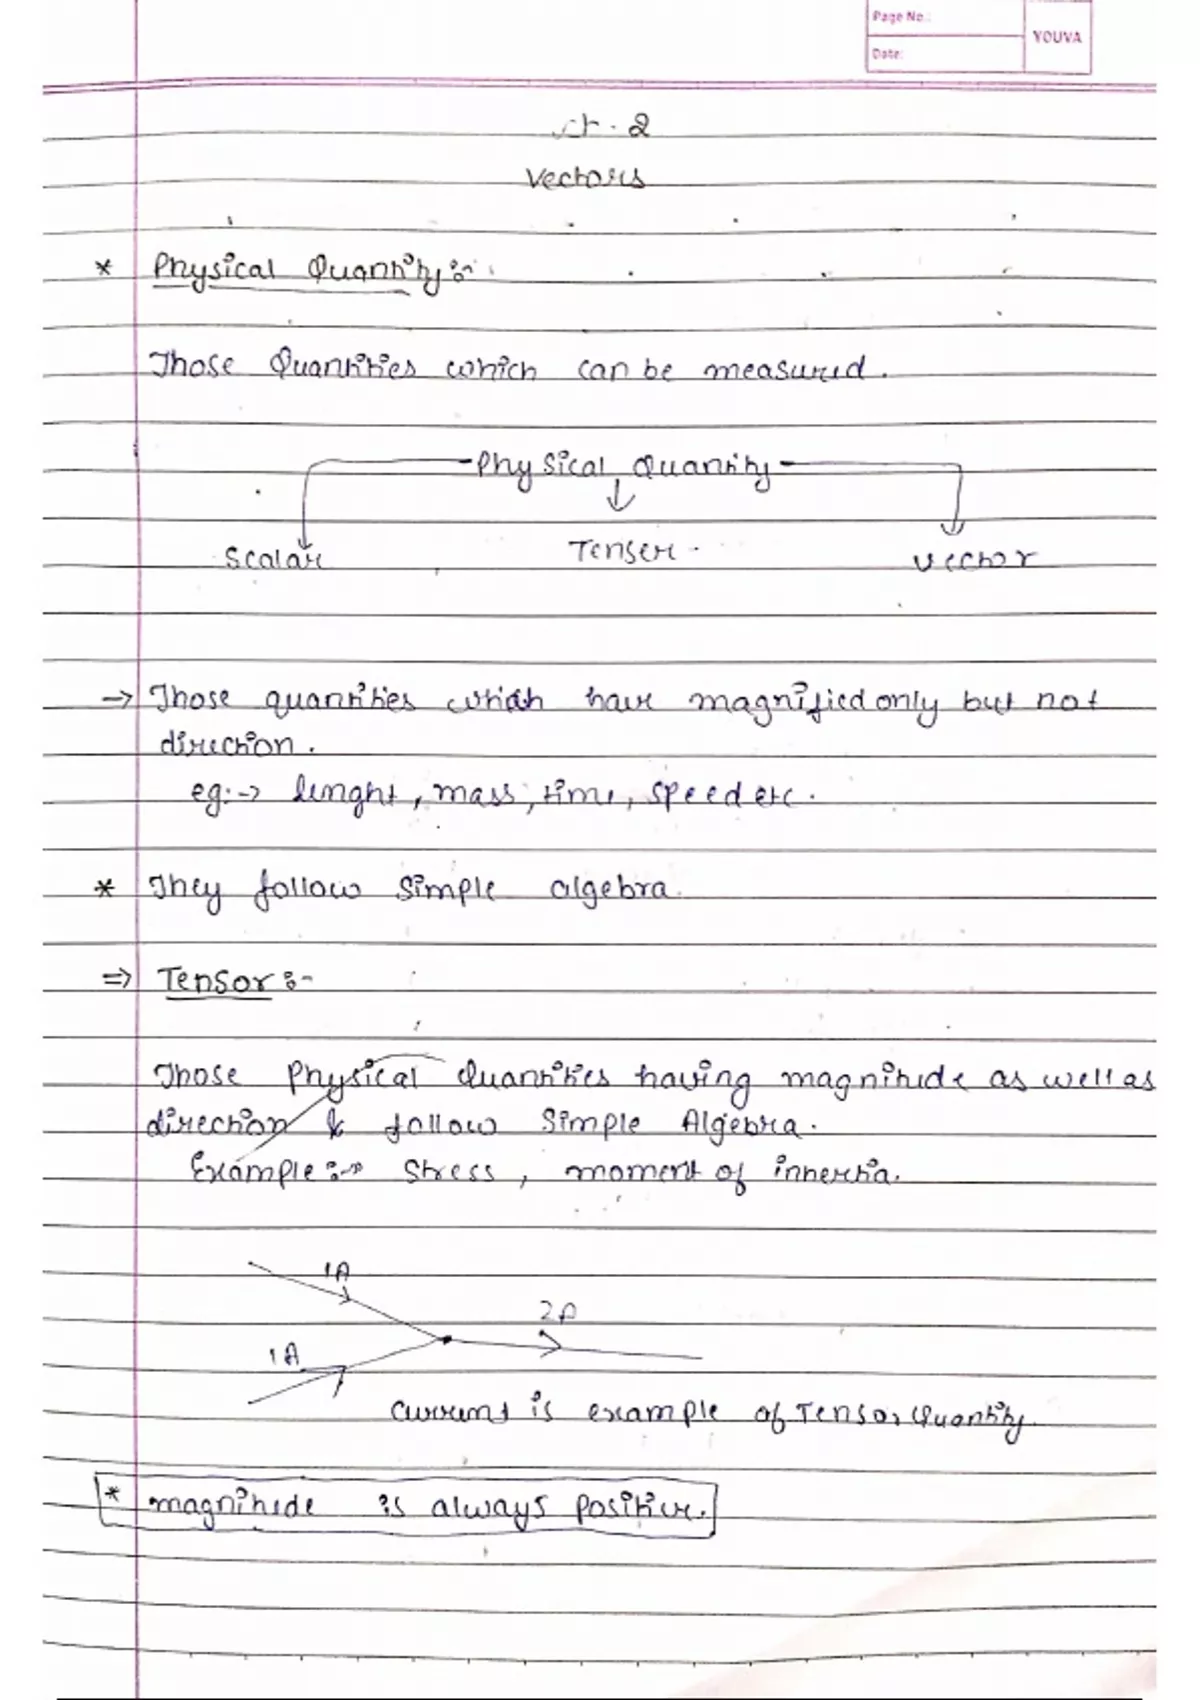 Page No.:
Date:
YOUVA
Ch. 2
Vectors
* Physical Quantity :-
Those Quantities which can be measured.
Physical Quantity
Scalar Tenser. Vector
→ Those quantities which have magnified only but not
direction.
eg:→ lenght, mass, time, speed etc.
* They follow simple algebra.
⇒ Tensor :-
Those Physical Quantities having magnitude as well as
direction & follow Simple Algebra.
Example :→ Stress, moment of innertia.
1A
2A
1A
Current is example of Tensor Quantity.
* magnitude is always positive.